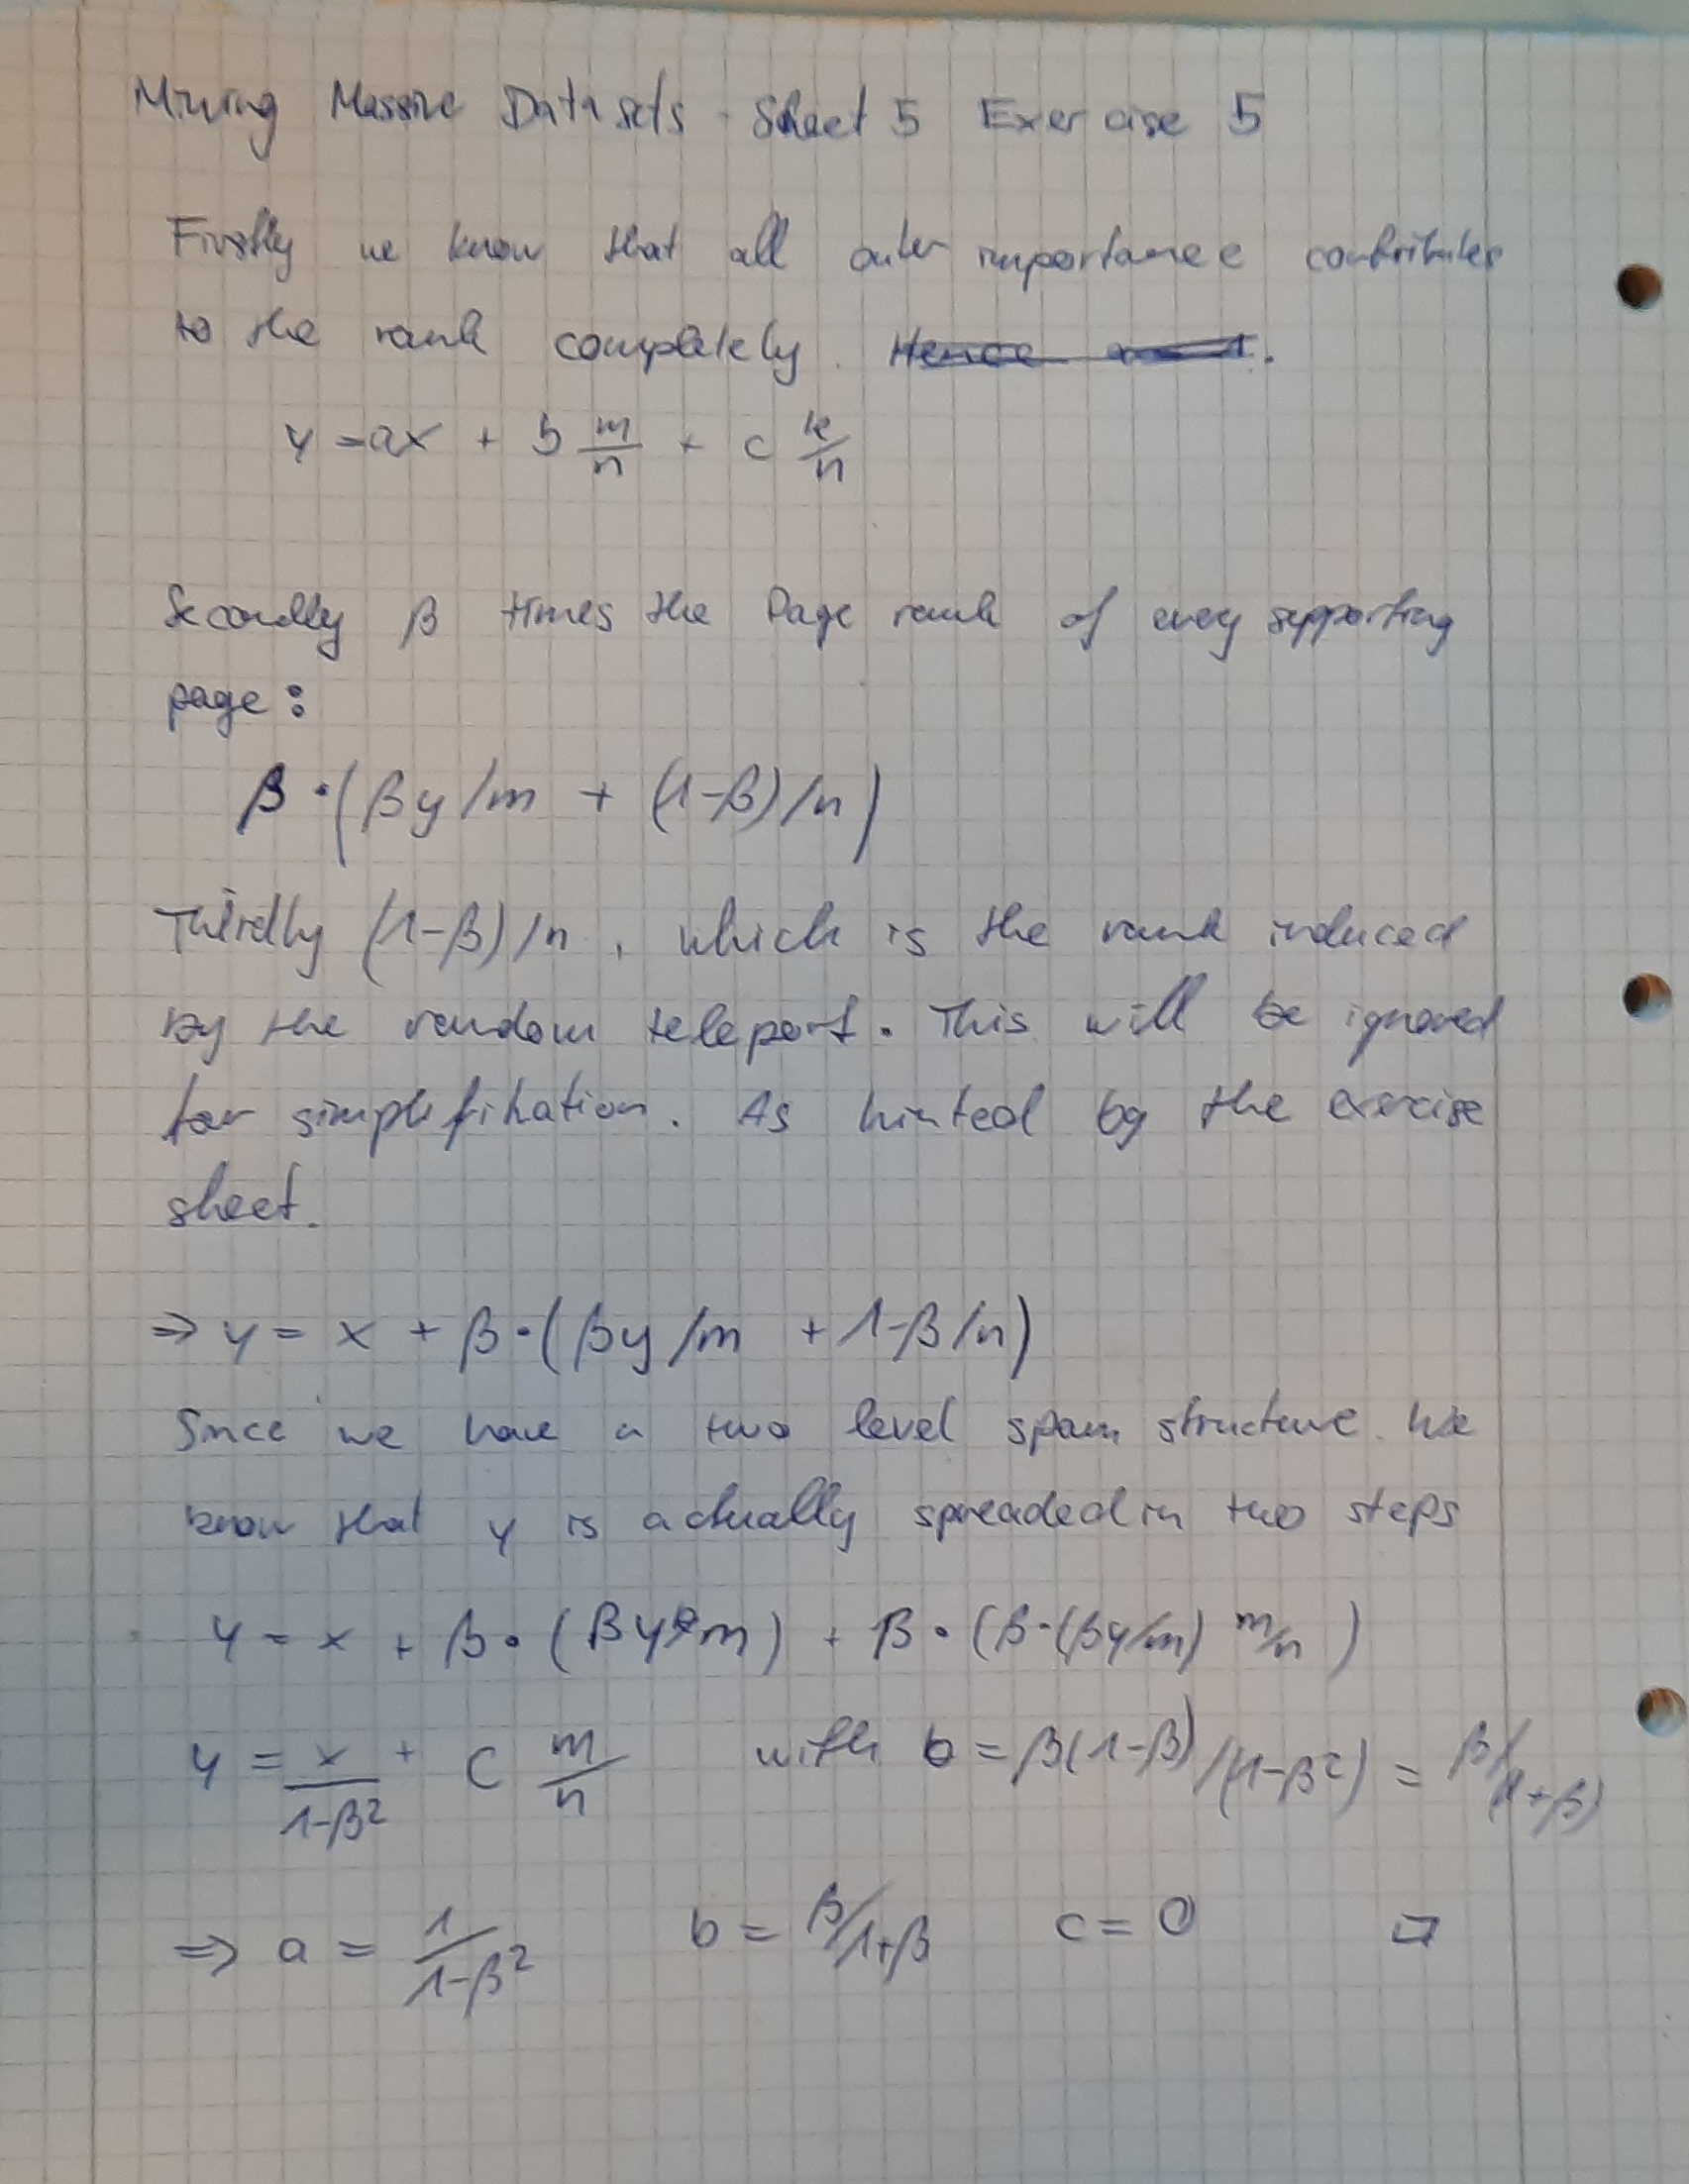 Mining Massive Datasets - Sheet 5 Exercise 5
Firstly we know that all outer importance contributes
to the rank completely. Hence
y = ax + b m/n + c k/n
Secondly β times the Page rank of every supporting
page:
β·(βy/m + (1-β)/n)
Thirdly (1-β)/n, which is the rank induced
by the random teleport. This will be ignored
for simplifikation. As hinted by the exercise
sheet.
⇒ y = x + β·(βy/m + 1-β/n)
Since we have a two level spam structure. We
know that y is actually spreaded in two steps
y = x + β·(βy/m) + β·(β·(βy/m) m/n)
y = x/1-β² + c m/n with b = β(1-β)/(1-β²) = β/(1+β)
⇒ a = 1/1-β² b = β/1+β c = 0 □